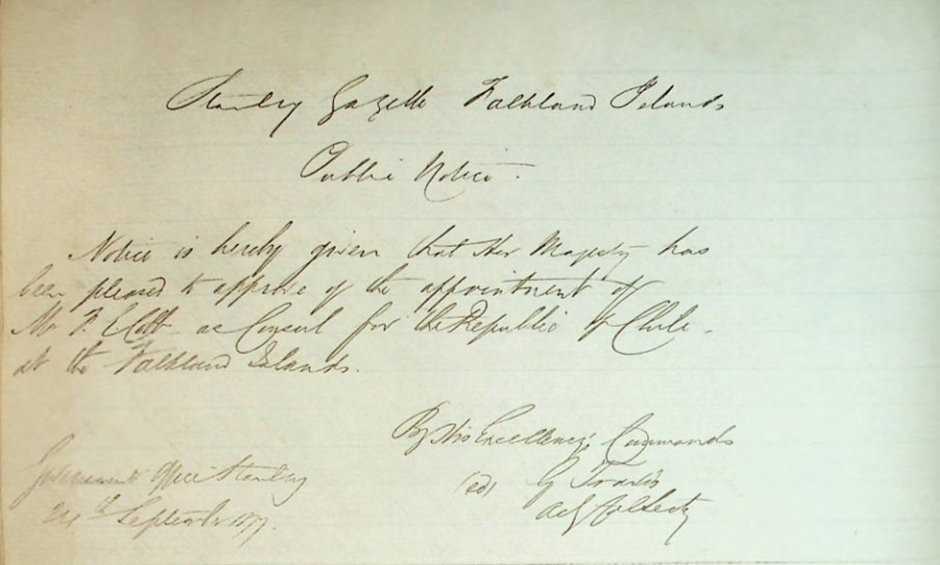 Stanley Gazette Falkland Islands
Public Notice.
Notice is hereby given that Her Majesty has
been pleased to approve of the appointment of
Mr F. E. Cobb as Consul for the Republic of Chile.
at the Falkland Islands.
By His Excellency's Commands
Government Office Stanley
(sd) G Travis
24th September 1877.
Act Col Secty